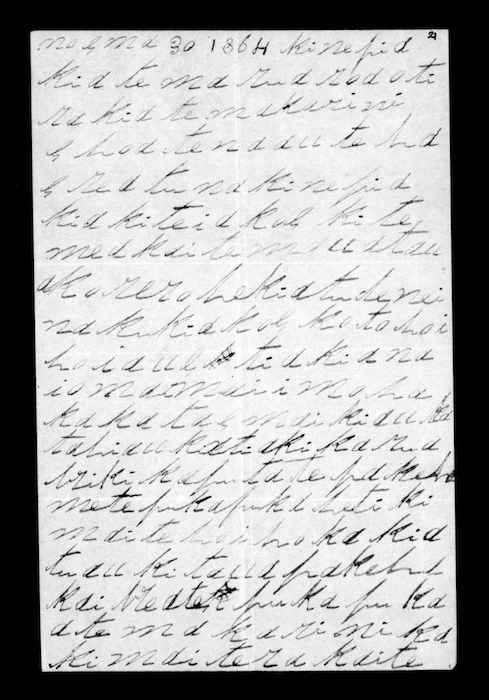 noema 30 1864 kinepia
kia te ma rua
ra kia te makarini
e hoa tena au te ha
e rea tu na kinepia
kia kite ia koe ki te
mea kai te mau atau
a korero he kia tu he nei
na ku kia koe ko to hoi
hoia au tiakiana
i o ma mai i mo ha
ka ka tae mai ki au ka
tahi au ka tiaki ka rua
wiki ka puta te pakeha
me te pukapuka heti ki
mai te hoi ho ka kia
tu au ki taua pakeha
kai reate puka pu ka
a te ma ka ri ni ka
ki mai te ra kaite